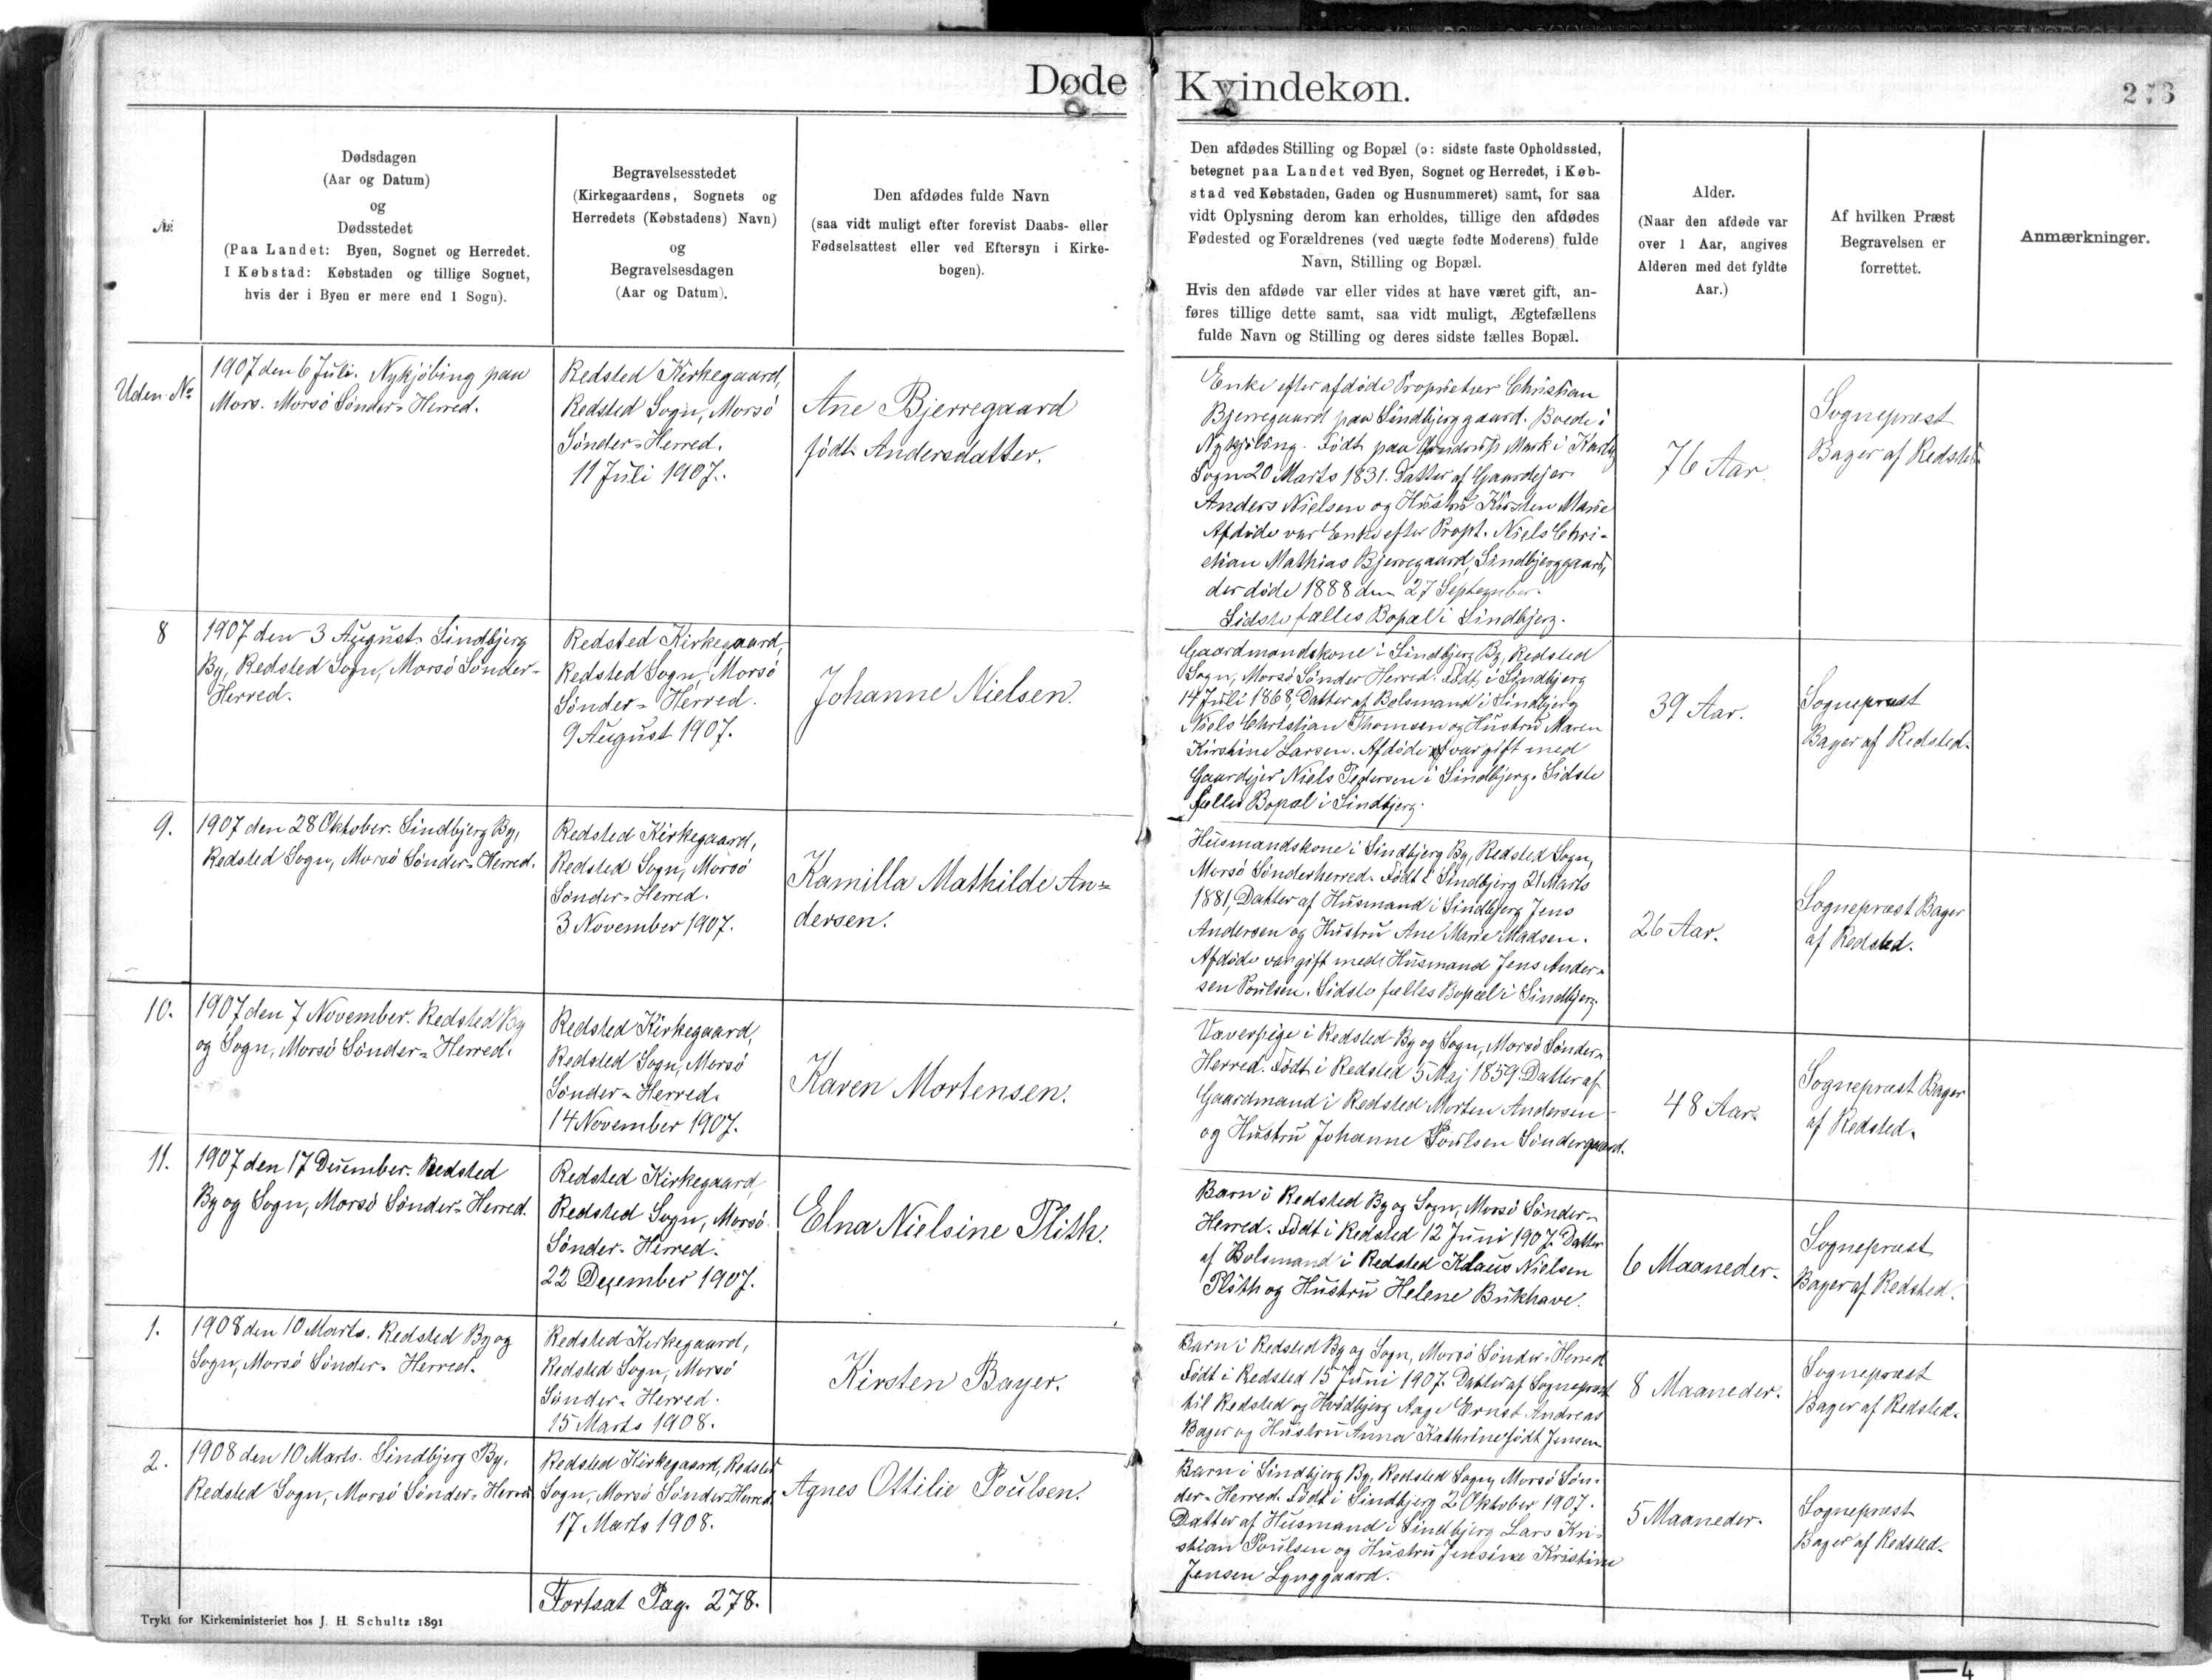 Døde
Kvindekøn.
№
Dødsdagen
(Aar og Datum)
og
Dødsstedet
(Paa Landet: Byen, Sognet og Herredet.
I Købstad: Købstaden og tillige Sognet,
hvis der i Byen er mere end 1 Sogn).
Begravelsesstedet
(Kirkegaardens, Sognets og
Herredets (Købstadens) Navn)
og
Begravelsesdagen
(Aar og Datum).
Den afdødes fulde Navn
(saa vidt muligt efter forevist Daabs- eller
Fødselsattest eller ved Eftersyn i Kirke-
bogen).
Den afdødes Stilling og Bopæl (ɔ: sidste faste Opholdssted,
betegnet paa Landet ved Byen, Sognet og Herredet, i Køb-
stad ved Købstaden, Gaden og Husnummeret) samt, for saa
vidt Oplysning derom kan erholdes, tillige den afdødes
Fødested og Forældrenes (ved uægte fødte Moderens) fulde
Navn, Stilling og Bopæl.
Hvis den afdøde var eller vides at have været gift, an-
føres tillige dette samt, saa vidt muligt, Ægtefællens
fulde Navn og Stilling og deres sidste fælles Bopæl.
Alder.
(Naar den afdøde var
over 1 Aar, angives
Alderen med det fyldte
Aar.)
Af hvilken Præst
Begravelsen er
forrettet.
Anmærkninger.
Uden No
1907 den 6 Juli. Nykjöbing paa
Mors. Morsö Sönder-Herred.
Redsted Kirkegaard,
Redsted Sogn, Morsö
Sönder-Herred.
11 Juli 1907.
Ane Bjerregaard
födt Andersdatter.
Enke efter afdöde Proprietær Christian
Bjerregaard paa Sindbjerggaard. Boede i
Nykjöbing. Födt paa Mark i
Sogn 20 Marts 1831. Datter af Gaardejer
Anders Nielsen og Hustru Kirsten Marie
Afdöde var Enke efter Propt. Niels Chri-
stian Mathias Bjerregaard, Sindbjerggaard,
der döde 1888 den 27 September.
Sidste fælles Bopæl i Sindbjerg.
76 Aar
Sognepræst
Bager af Redsted
8
1907 den 3 August. Sindbjerg
By, Redsted Sogn, Morsö Sönder-
Herred.
Redsted Kirkegaard,
Redsted Sogn, Morsö
Sönder-Herred.
9 August 1907.
Johanne Nielsen.
Gaardmandskone i Sindbjerg By, Redsted
Sogn, Morsö Sönder Herred. Födt i Sindbjerg
14 Juli 1868, Datter af Bolsmand i Sindbjerg
Niels Christian Thomsen og Hustru Maren
Kirstine Larsen. Afdöde var gift med
Gaardejer Niels Pedersen i Sindbjerg. Sidste
fælles Bopæl i Sindbjerg.
39 Aar.
Sognepræst
Bager af Redsted.
9.
1907 den 28 Oktober. Sindbjerg By,
Redsted Sogn, Morsö Sönder-Herred.
Redsted Kirkegaard,
Redsted Sogn, Morsö
Sönder-Herred.
3 November 1907.
Kamilla Mathilde An-
dersen.
Husmandskone i Sindbjerg By, Redsted Sogn,
Morsö Sönderherred. Födt i Sindbjerg 21 Marts
1881, Datter af Husmand i Sindbjerg Jens
Andersen og Hustru Ane Marie Madsen.
Afdöde var gift med Husmand Jens Ander-
sen Poulsen. Sidste fælles Bopæl i Sindbjerg.
26 Aar.
Sognepræst Bager
af Redsted.
10.
1907 den 7 November. Redsted By
og Sogn, Morsö Sönder-Herred.
Redsted Kirkegaard,
Redsted Sogn, Morsö
Sönder-Herred.
14 November 1907.
Karen Mortensen.
Væverpige i Redsted By og Sogn, Morsö Sönder-
Herred. Födt i Redsted 5 Maj 1859. Datter af
Gaardmand i Redsted Morten Andersen
og Hustru Johanne Poulsen Söndergaard.
48 Aar.
Sognepræst Bager
af Redsted.
11.
1907 den 17 December. Redsted
By og Sogn, Morsö Sönder-Herred.
Redsted Kirkegaard,
Redsted Sogn, Morsö
Sönder-Herred.
22 December 1907.
Elna Nielsine Plith.
Barn i Redsted By og Sogn, Morsö Sönder-
Herred. Födt i Redsted 12 Juni 1907. Datter
af Bolsmand i Redsted Klaus Nielsen
Plith og Hustru Helene Bukhave.
6 Maaneder.
Sognepræst
Bager af Redsted.
1.
1908 den 10 Marts. Redsted By og
Sogn, Morsö Sönder-Herred.
Redsted Kirkegaard,
Redsted Sogn, Morsö
Sönder-Herred.
15 Marts 1908.
Kirsten Bager.
Barn i Redsted By og Sogn, Morsö Sönder-Herred
Födt i Redsted 15 Juni 1907. Datter af Sognepræst
til Redsted og Hvidbjerg Aage Ernst Andreas
Bager og Hustru Anna Kathrine födt Jensen
8 Maaneder.
Sognepræst
Bager af Redsted.
2.
1908 den 10 Marts. Sindbjerg By,
Redsted Sogn, Morsö Sönder-Herred.
Redsted Kirkegaard, Redsted
Sogn, Morsö Sönder-Herred.
17 Marts 1908.
Agnes Ottilie Poulsen.
Barn i Sindbjerg By, Redsted Sogn, Morsö Sön-
der-Herred. Födt i Sindbjerg 2 Oktober 1907.
Datter af Husmand i Sindbjerg Lars Kri-
stian Poulsen og Hustru Jensine Kristine
Jensen Lynggaard.
5 Maaneder.
Sognepræst
Bager af Redsted.
Fortsat Pag. 278.
Trykt for Kirkeministeriet hos J. H. Schultz 1891
4